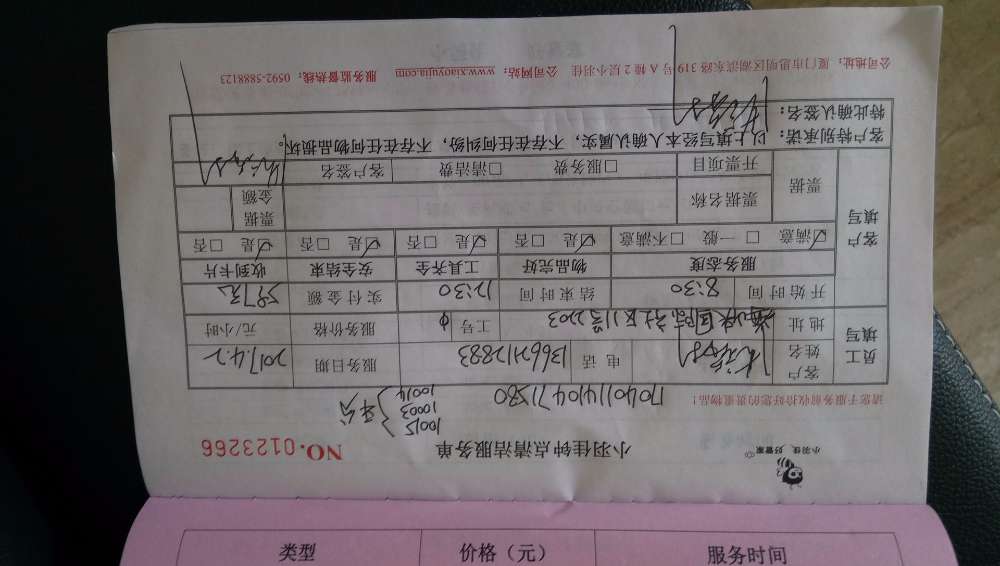 小羽佳.好管家
小羽佳钟点清洁服务单
NO.0123266
10015
10003
10014
平分
请您于服务前收拾好您的贵重物品!
17040114104471580
员工填写
客户姓名
电话 13662112883
服务日期 2017.4.2
地址
国际社区11号2203
工号
服务价格 元/小时
开始时间 8:30
结束时间 12:30
实付金额 597元
客户填写
服务态度 物品完好 工具齐全 安全结束 收到卡片
☑满意 □一般 □不满意 ☑是 □否 ☑是 □否 ☑是 □否 ☑是 □否
票据 票据名称 票据金额
开票项目 □服务费 □清洁费 客户签名
客户特别承诺:以上填写经本人确认属实,不存在任何纠纷,不存在任何物品损坏。
特此确认签名:
公司地址:厦门市思明区湖滨东路319号A幢2层小羽佳 公司网站:www.xiaoyujia.com 服务监督热线:0592-5888123
类型 价格(元) 服务时间